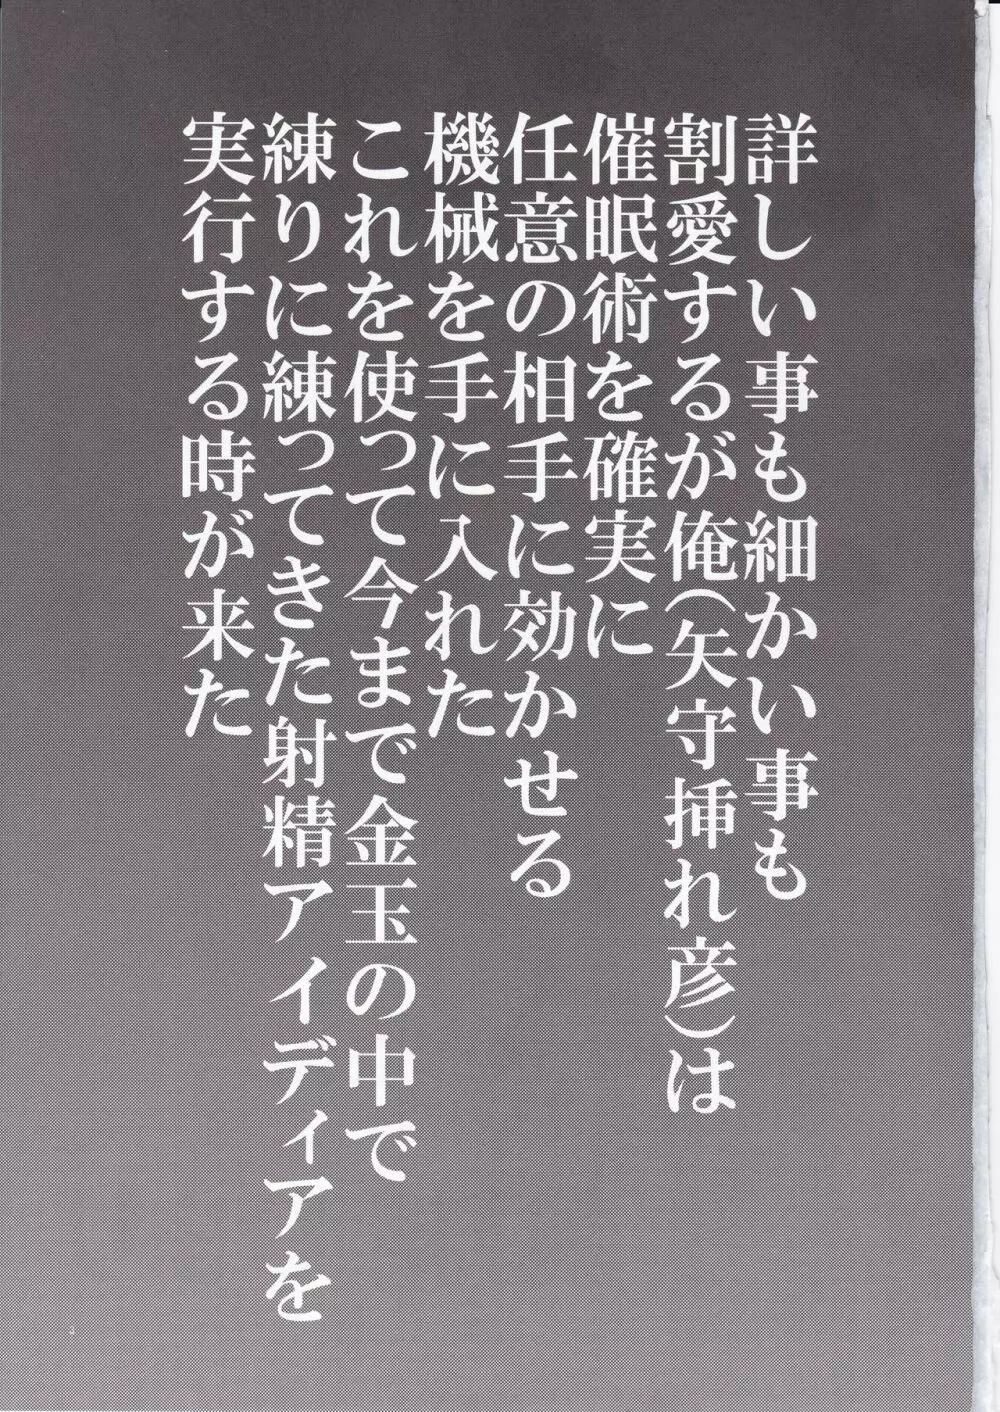 詳しい事も細かい事も
割愛するが俺(矢守挿れ彦)は
催眠術を確実に
任意の相手に効かせる
機械を手に入れた
これを使って今まで金玉の中で
練りに練ってきた射精アイディアを
実行する時が来た
3